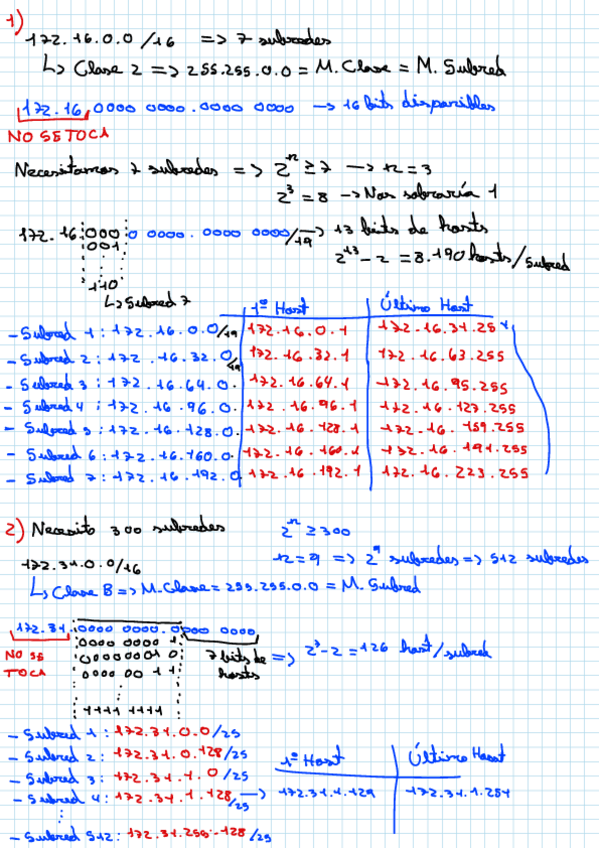 1)
172.16.0.0/16 => 7 subredes
↳ Clase 2 => 255.255.0.0 = M. Clase = M. Subred
172.16.0000 0000.0000 0000 → 16 bits disponibles
NO SE TOCA
Necesitamos 7 subredes => 2^n ≥ 7 → n = 3
2^3 = 8 → Nos sobraría 1
172.16.000 0 0000.0000 0000/19 → 13 bits de hosts
001
2^13 - 2 = 8.190 hosts/subred
110
↳ Subred 7
1º Host Último Host
- Subred 1: 172.16.0.0/19 172.16.0.1 172.16.31.254
- Subred 2: 172.16.32.0/19 172.16.32.1 172.16.63.255
- Subred 3: 172.16.64.0 172.16.64.1 172.16.95.255
- Subred 4: 172.16.96.0 172.16.96.1 172.16.127.255
- Subred 5: 172.16.128.0 172.16.128.1 172.16.159.255
- Subred 6: 172.16.160.0 172.16.160.1 172.16.191.255
- Subred 7: 172.16.192.0 172.16.192.1 172.16.223.255
2) Necesito 300 subredes 2^n ≥ 300
172.31.0.0/16 n = 9 => 2^9 subredes => 512 subredes
↳ Clase B => M. Clase = 255.255.0.0 = M. Subred
172.31.0000 0000.0000 0000
0000 0000 1
NO SE TOCA
0000 0001 0
7 bits de hosts => 2^7 - 2 = 126 host/subred
0000 00 1 1
1111 1111
- Subred 1: 172.31.0.0/25
- Subred 2: 172.31.0.128/25
1º Host Último Host
- Subred 3: 172.31.1.0/25
- Subred 4: 172.31.1.128/25 → 172.31.1.129 172.31.1.254
- Subred 512: 172.31.255.128/25